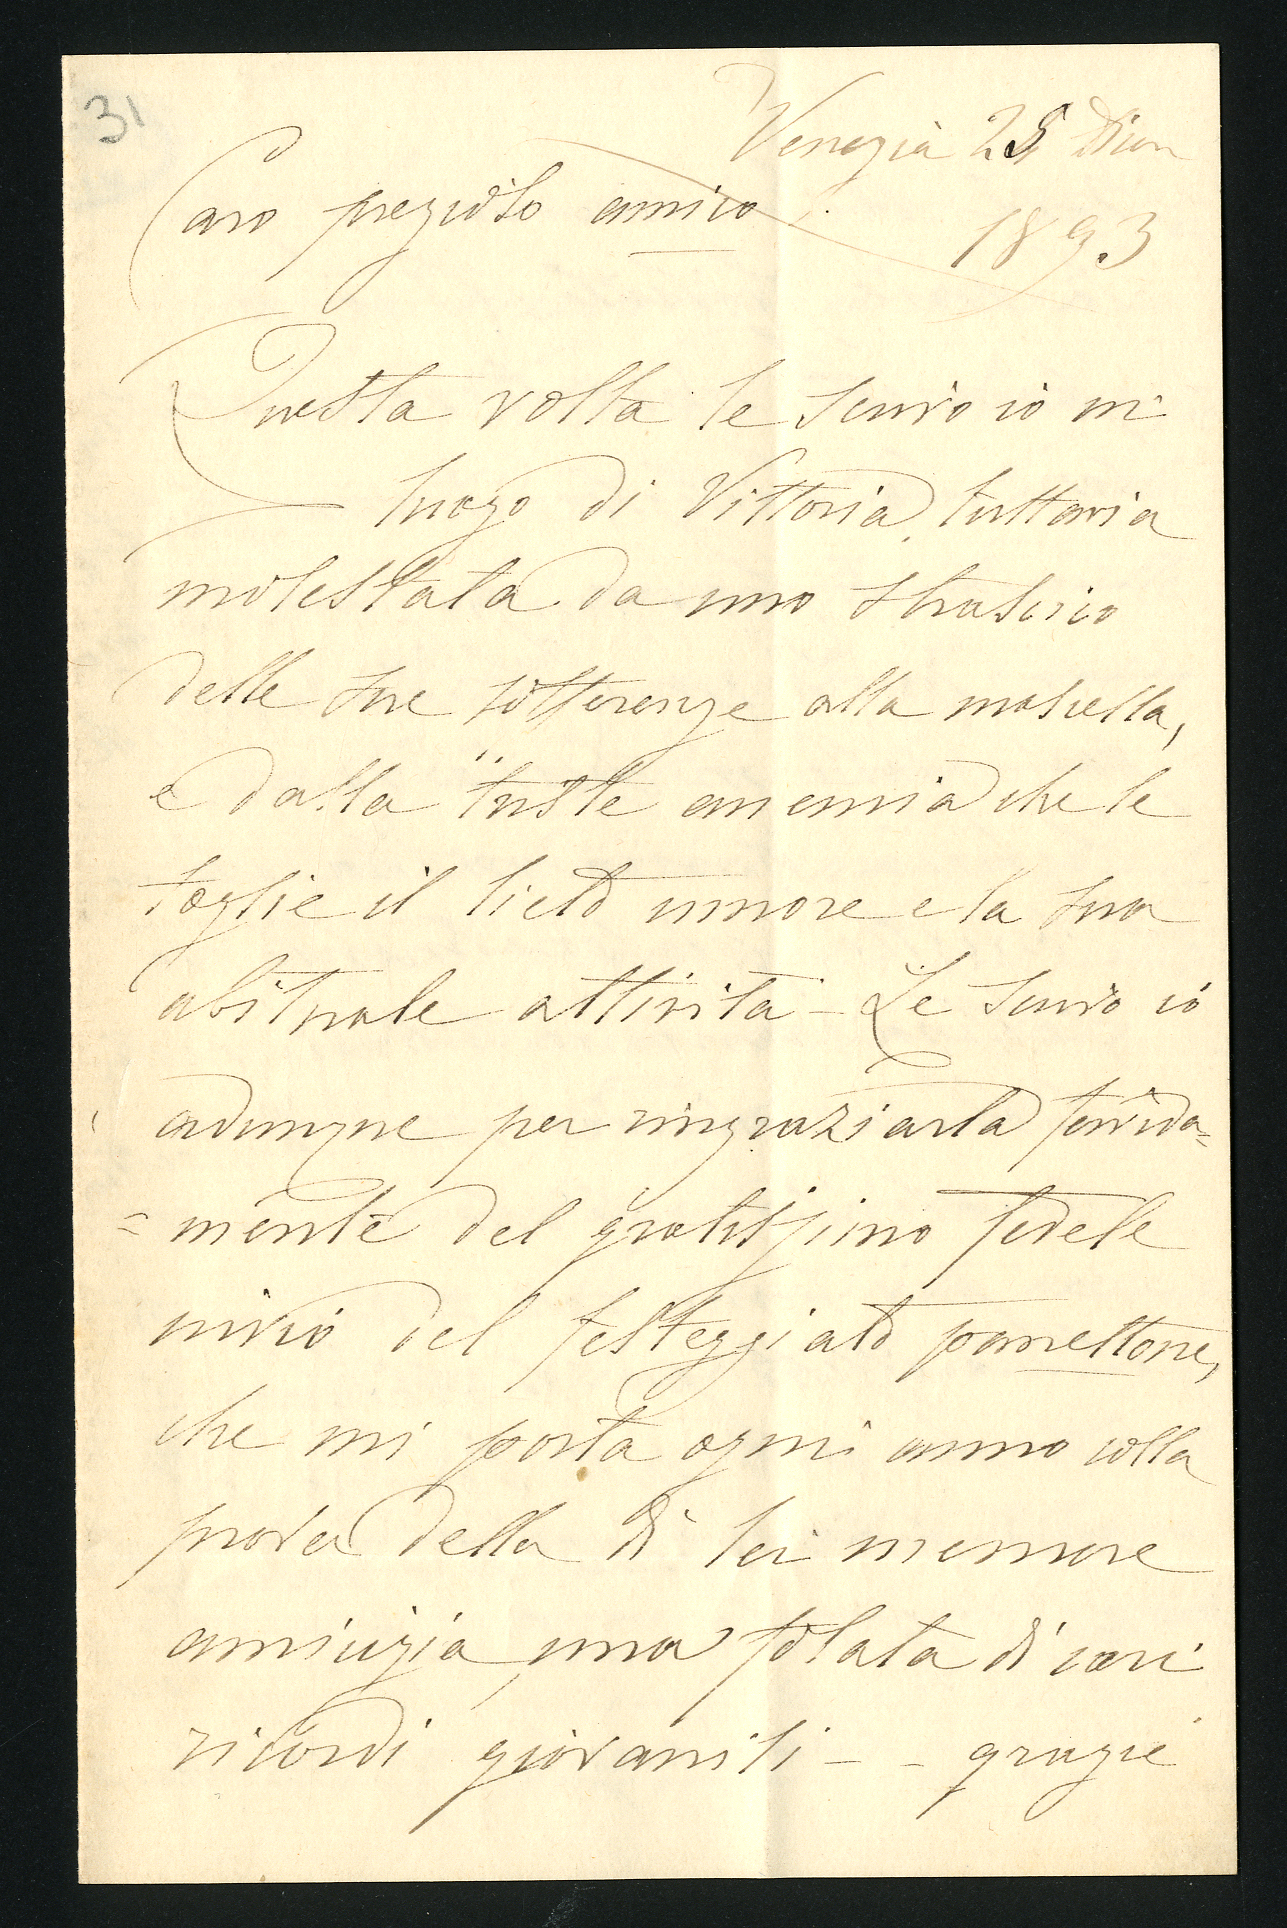 31
Venezia 25 Dicem
1893
Caro prezioso amico.
Questa volta le scrivo io in
luogo di Vittoria, tuttavia
molestata da uno strascico
delle sue sofferenze alla mascella,
e dalla triste anemia che le
toglie il lieto umore e la sua
abituale attività - Le scrivo io
adunque per ringraziarla fervida=
=mente del gratissimo fedele
invio del festeggiato panettone,
che mi porta ogni anno colla
prova della di lei memore
amicizia, una folata di cari
ricordi giovanili - - grazie